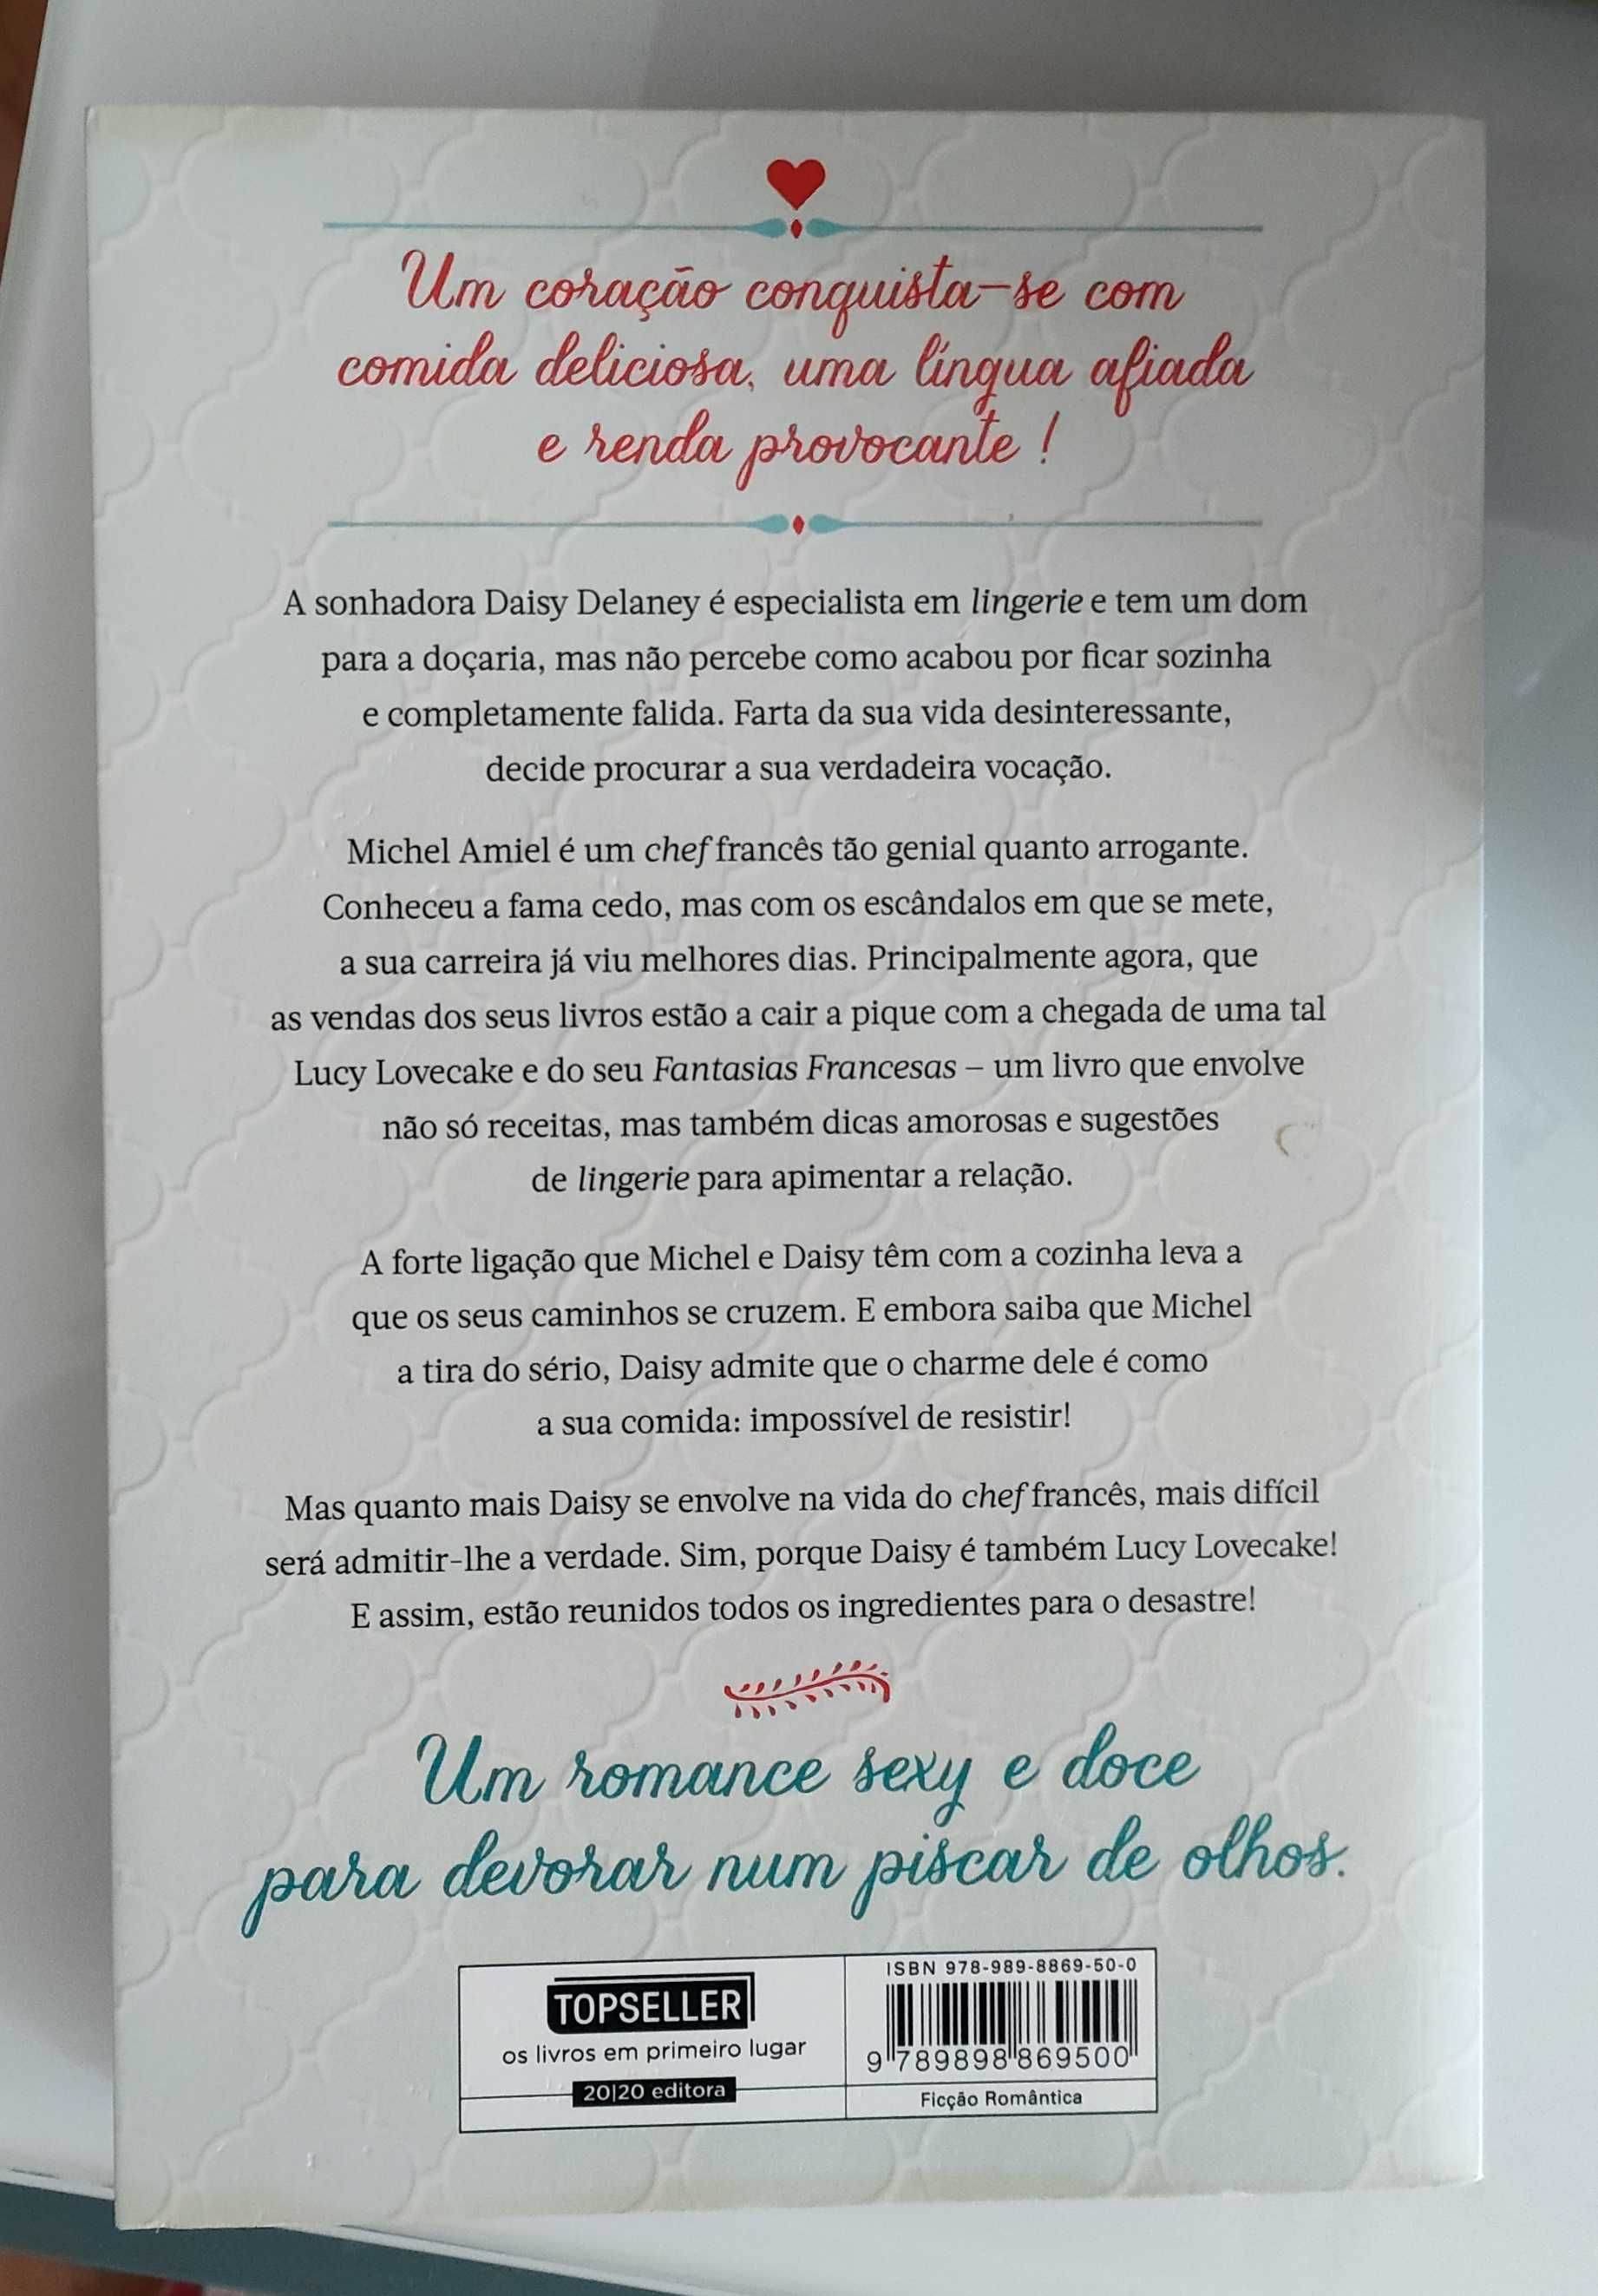 Um coração conquista-se com
comida deliciosa, uma língua afiada
e renda provocante !
A sonhadora Daisy Delaney é especialista em lingerie e tem um dom
para a doçaria, mas não percebe como acabou por ficar sozinha
e completamente falida. Farta da sua vida desinteressante,
decide procurar a sua verdadeira vocação.
Michel Amiel é um chef francês tão genial quanto arrogante.
Conheceu a fama cedo, mas com os escândalos em que se mete,
a sua carreira já viu melhores dias. Principalmente agora, que
as vendas dos seus livros estão a cair a pique com a chegada de uma tal
Lucy Lovecake e do seu Fantasias Francesas – um livro que envolve
não só receitas, mas também dicas amorosas e sugestões
de lingerie para apimentar a relação.
A forte ligação que Michel e Daisy têm com a cozinha leva a
que os seus caminhos se cruzem. E embora saiba que Michel
a tira do sério, Daisy admite que o charme dele é como
a sua comida: impossível de resistir!
Mas quanto mais Daisy se envolve na vida do chef francês, mais difícil
será admitir-lhe a verdade. Sim, porque Daisy é também Lucy Lovecake!
E assim, estão reunidos todos os ingredientes para o desastre!
Um romance sexy e doce
para devorar num piscar de olhos.
TOPSELLER
os livros em primeiro lugar
20|20 editora
ISBN 978-989-8869-50-0
9 789898 869500
Ficção Romântica